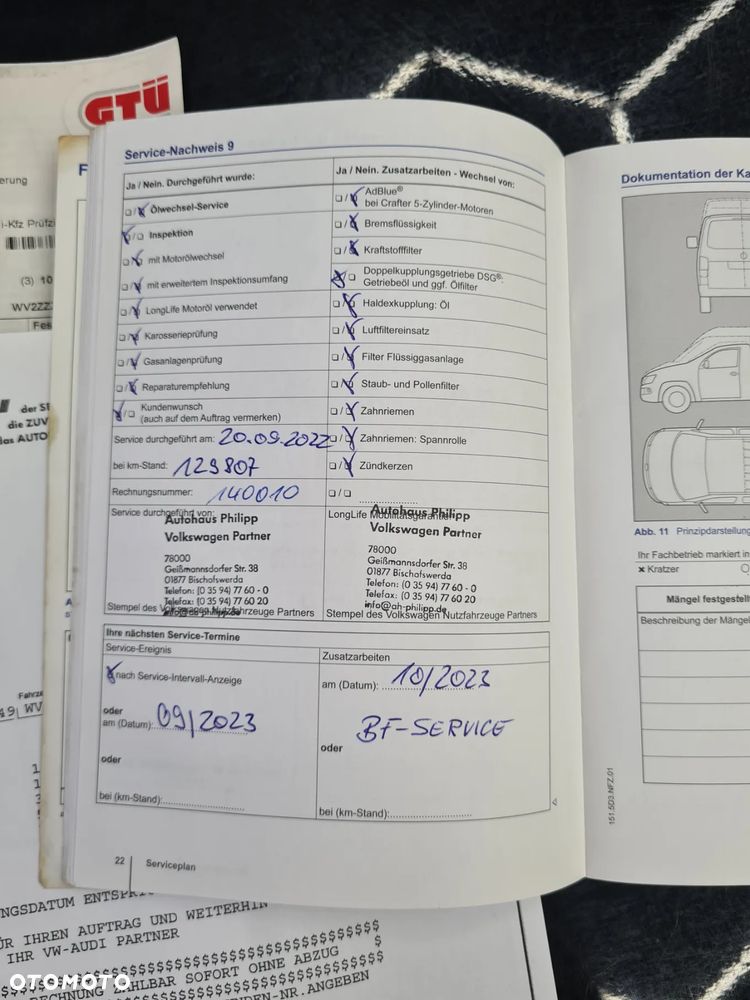 GTÜ
Service-Nachweis 9
Ja / Nein. Durchgeführt wurde:
Ölwechsel-Service
Inspektion
mit Motorölwechsel
mit erweitertem Inspektionsumfang
LongLife Motoröl verwendet
Karosserieprüfung
Gasanlagenprüfung
Reparaturempfehlung
Kundenwunsch
(auch auf dem Auftrag vermerken)
Service durchgeführt am: 20.09.2022
bei km-Stand: 129807
Rechnungsnummer: 140010
Service durchgeführt von:
Autohaus Philipp
Volkswagen Partner
78000
Geißmannsdorfer Str. 38
01877 Bischofswerda
Telefon: (0 35 94) 77 60 - 0
Telefax: (0 35 94) 77 60 20
info@ah-philipp.de
Stempel des Volkswagen Nutzfahrzeuge Partners
Ja / Nein. Zusatzarbeiten - Wechsel von:
AdBlue®
bei Crafter 5-Zylinder-Motoren
Bremsflüssigkeit
Kraftstofffilter
Doppelkupplungsgetriebe DSG®:
Getriebeöl und ggf. Ölfilter
Haldexkupplung: Öl
Luftfiltereinsatz
Filter Flüssiggasanlage
Staub- und Pollenfilter
Zahnriemen
Zahnriemen: Spannrolle
Zündkerzen
LongLife Mobilitätsgarantie
Autohaus Philipp
Volkswagen Partner
78000
Geißmannsdorfer Str. 38
01877 Bischofswerda
Telefon: (0 35 94) 77 60 - 0
Telefax: (0 35 94) 77 60 20
info@ah-philipp.de
Stempel des Volkswagen Nutzfahrzeuge Partners
Ihre nächsten Service-Termine
Service-Ereignis
nach Service-Intervall-Anzeige
oder
am (Datum): 09/2023
oder
bei (km-Stand):
Zusatzarbeiten
am (Datum): 10/2023
BF-SERVICE
oder
bei (km-Stand):
22 Serviceplan
Dokumentation der Ka
Abb. 11 Prinzipdarstellung
Ihr Fachbetrieb markiert in
× Kratzer
Mängel festgestell
Beschreibung der Mängel
151.5D3.NFZ.01
erung
-Kfz Prüfzi
(3) 10
WV2ZZ
Fes
der SE
die ZUV
das AUTO
Fahrze
49 WV
NGSDATUM ENTSPRI
ÜR IHREN AUFTRAG UND WEITERHIN
IHR VW-AUDI PARTNER
$$$$$$$$$$$$$$$$$$$$$$$$$$$$$$
RECHNUNG ZAHLBAR SOFORT OHNE ABZUG $
$$$$$$$$$$$$$$$$$$$$$$$$$$$$$$
DEN-NR.ANGEBEN
OTOMOTO